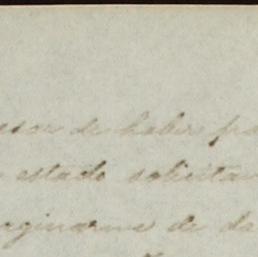 de haber
estado solicitan
aginarme de da